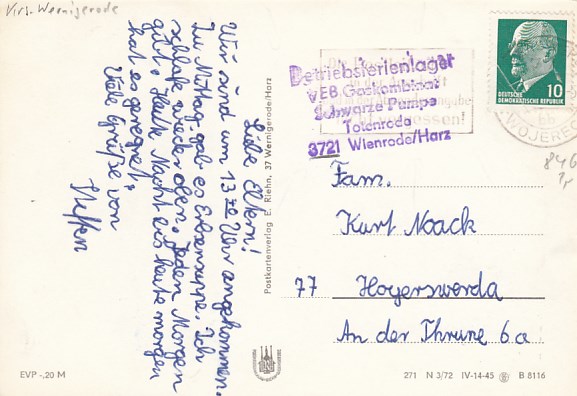 Virs. Wernigerode
Liebe Eltern!
Wir sind um 13 00 Uhr angekommen.
Zu Mittag gab es Erbsensuppe. Ich
schlafe wieder oben. Jeden Morgen
Heute Nacht bis heute morgen
hat es geregnet.
Viele Grüße von
Steffen
Postkartenverlag E. Riehn, 37 Wernigerode/Harz
Betriebsferienlager
VEB Gaskombinat
Schwarze Pumpe
Totenrode
3721 Wienrode/Harz
DEUTSCHE
DEMOKRATISCHE REPUBLIK
10
Fam.
Kurt Noack
77 Hoyerswerda
An der Thrune 6a
846
EVP -,20 M
271 N 3/72 IV-14-45 B 8116